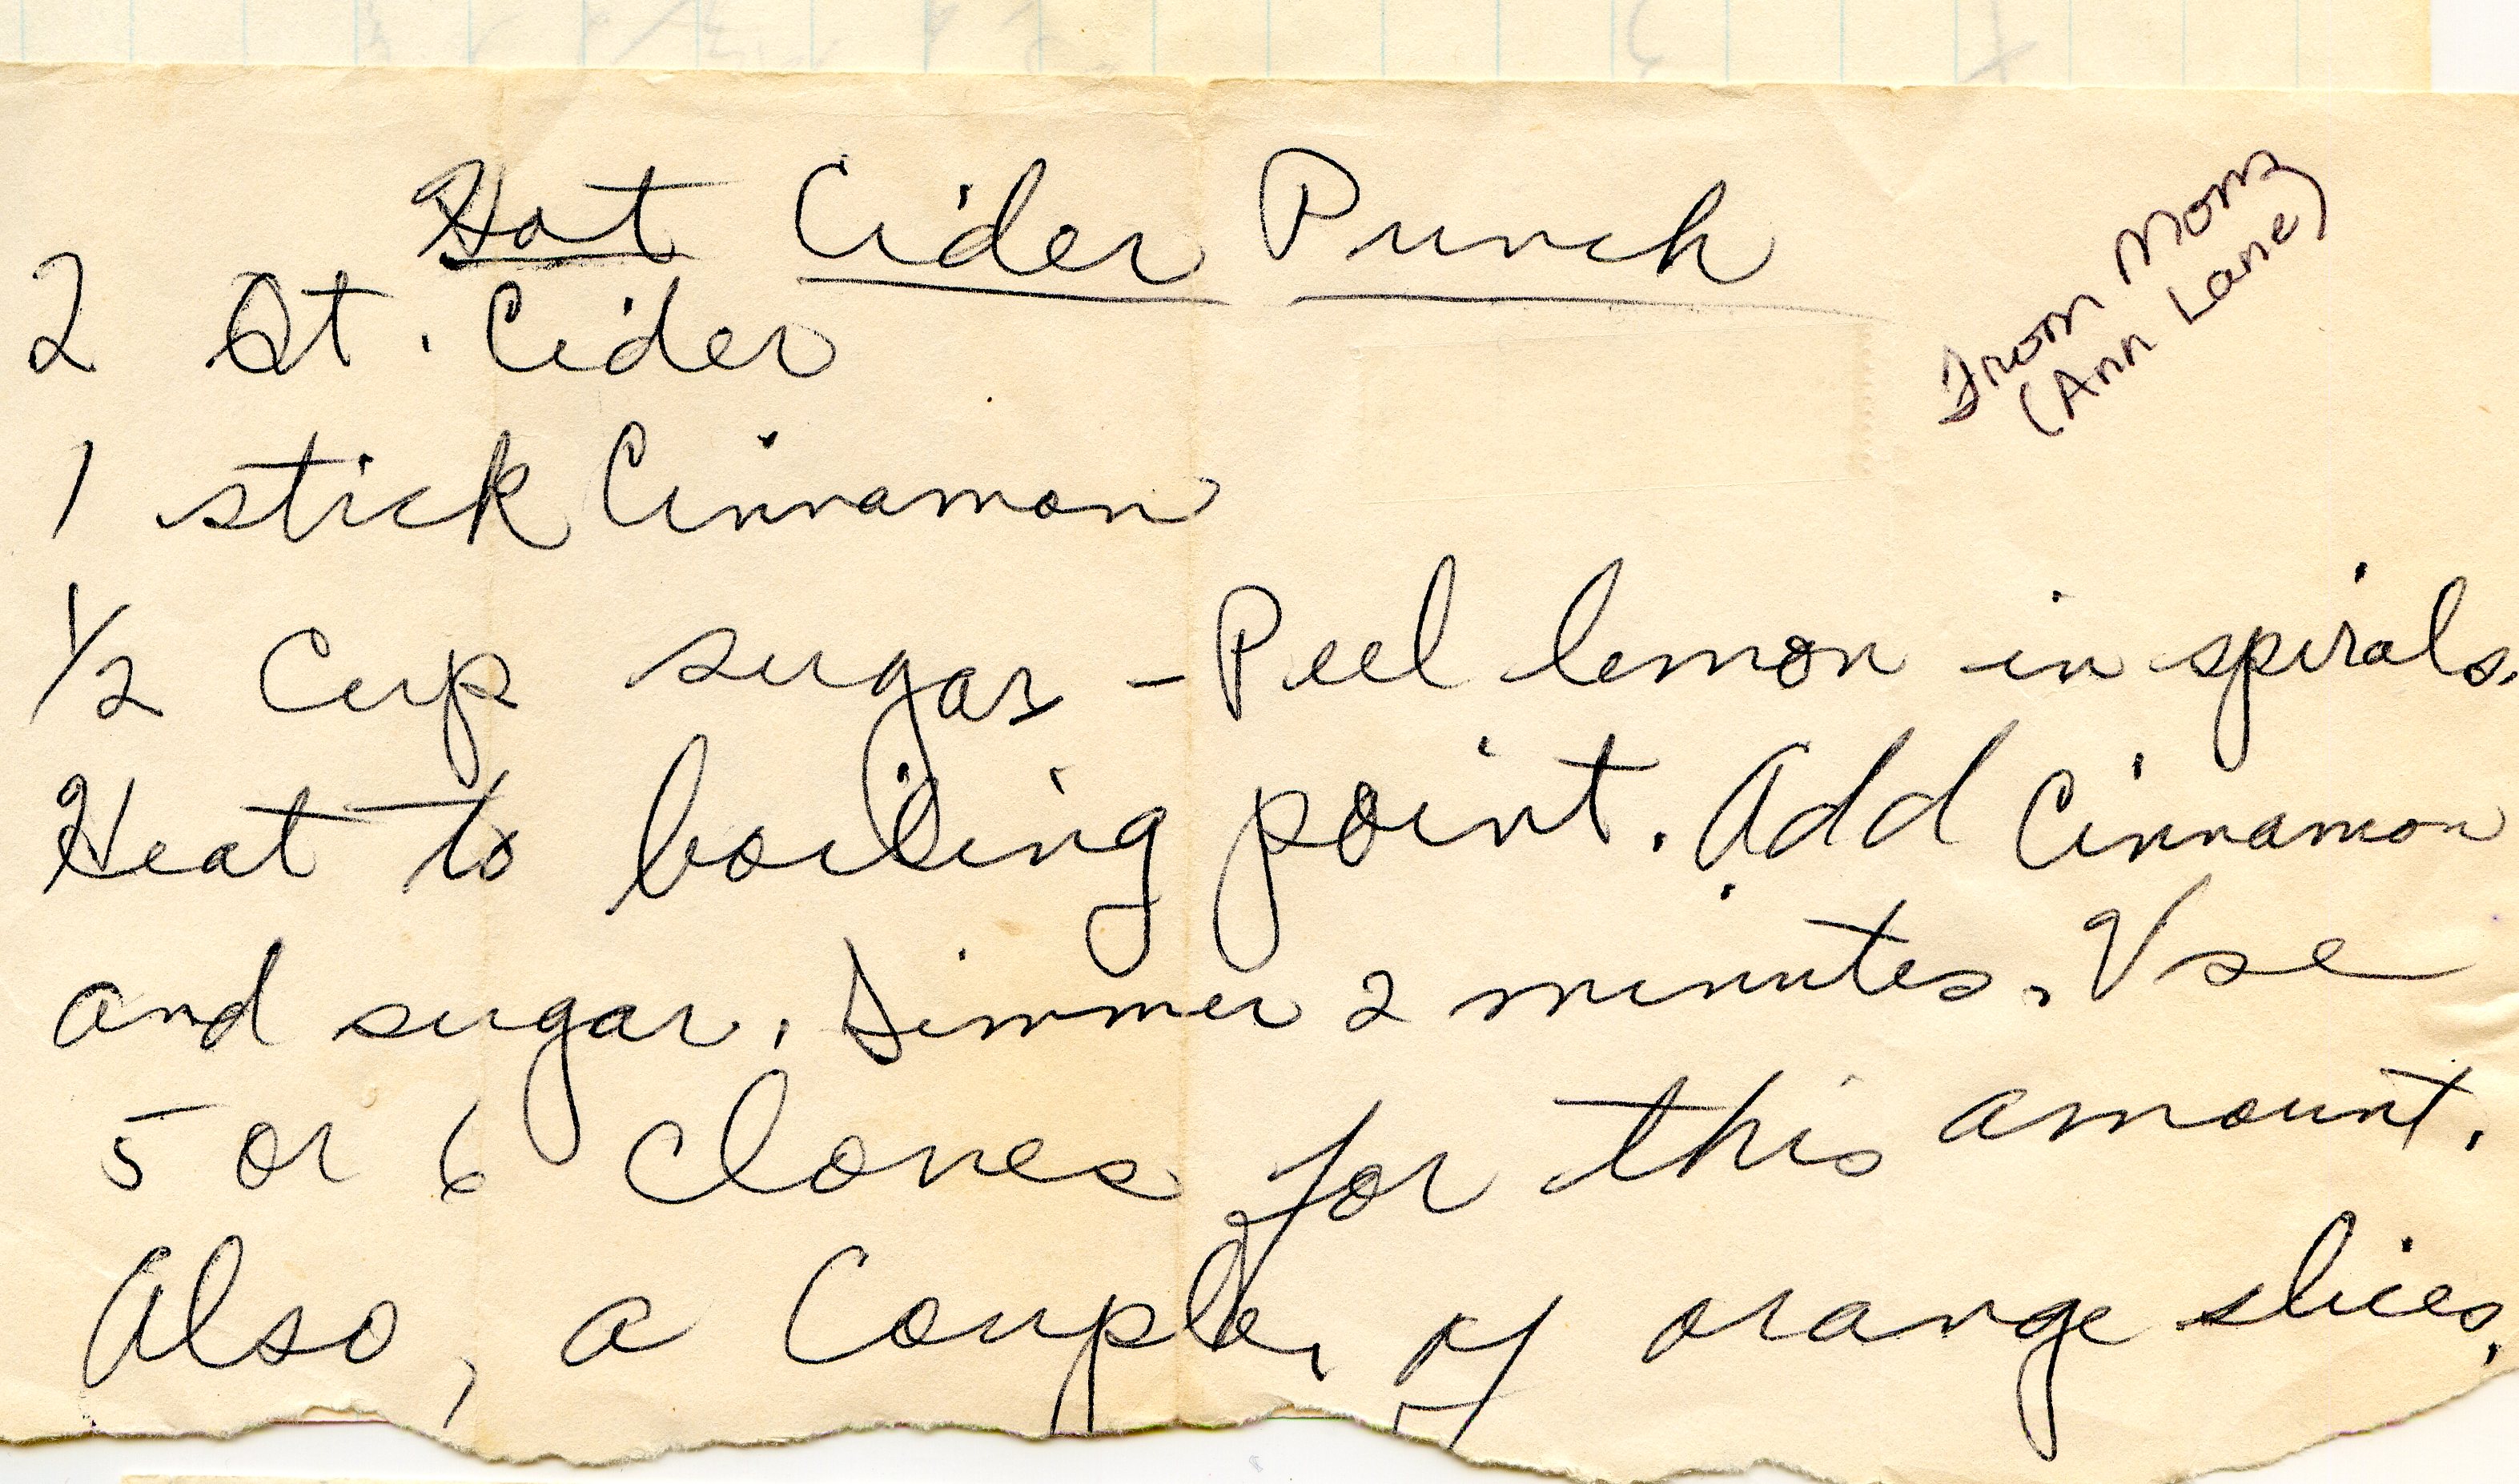 Hot Cider Punch
From Mom
(Ann Lane)
2 Qt. Cider
1 stick Cinnamon
1/2 Cup sugar - Peel lemon in spirals.
Heat to boiling point. Add Cinnamon
and sugar. Simmer 2 minutes. Use
5 or 6 Cloves for this amount.
Also, a Couple of orange slices.